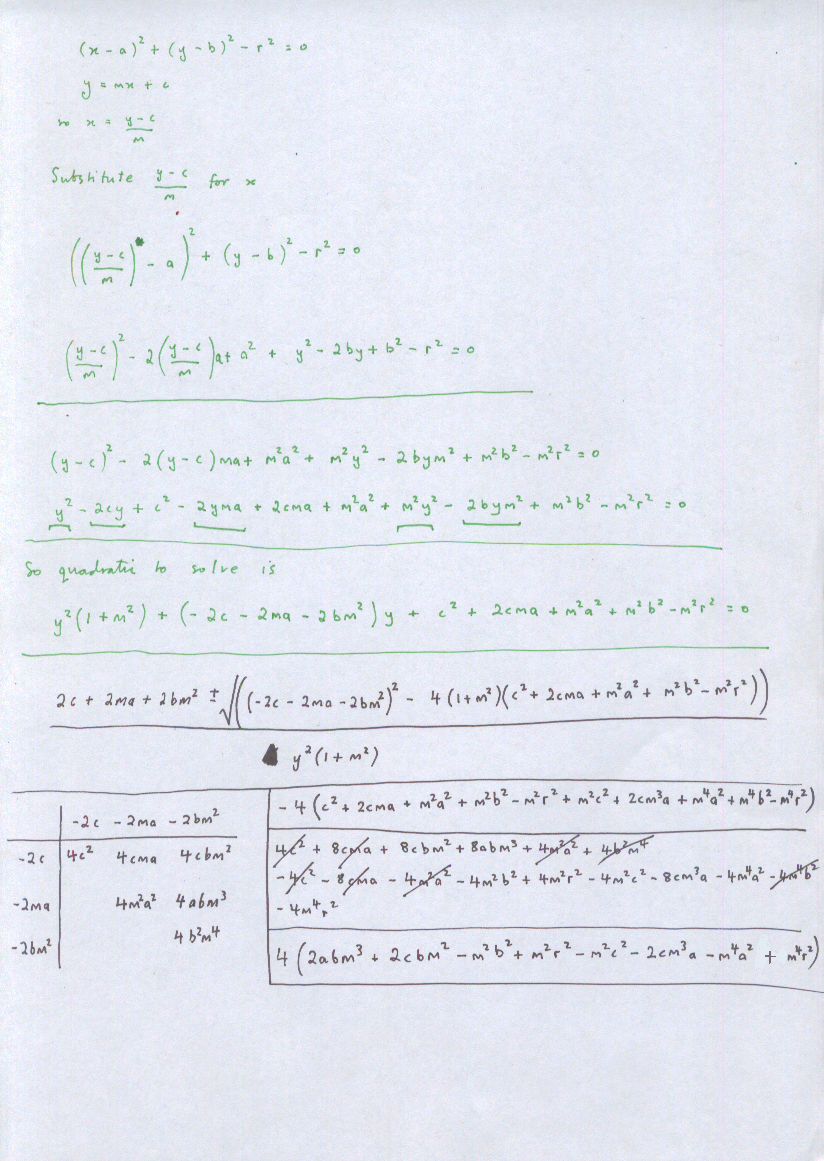 (x - a)² + (y - b)² - r² = 0
y = mx + c
so x = (y - c)/m
Substitute (y - c)/m for x
(((y - c)/m) - a)² + (y - b)² - r² = 0
((y - c)/m)² - 2((y - c)/m)a + a² + y² - 2by + b² - r² = 0
(y - c)² - 2(y - c)ma + m²a² + m²y² - 2bym² + m²b² - m²r² = 0
y² - 2cy + c² - 2yma + 2cma + m²a² + m²y² - 2bym² + m²b² - m²r² = 0
So quadratic to solve is
y²(1 + m²) + (- 2c - 2ma - 2bm²)y + c² + 2cma + m²a² + m²b² - m²r² = 0
2c + 2ma + 2bm² ± √((-2c - 2ma - 2bm²)² - 4(1 + m²)(c² + 2cma + m²a² + m²b² - m²r²))
y²(1 + m²)
-2c - 2ma - 2bm²
-2c 4c² 4cma 4cbm²
-2ma 4m²a² 4abm³
-2bm² 4b²m⁴
- 4(c² + 2cma + m²a² + m²b² - m²r² + m²c² + 2cm³a + m⁴a² + m⁴b² - m⁴r²)
4c² + 8cma + 8cbm² + 8abm³ + 4m²a² + 4b²m⁴
- 4c² - 8cma - 4m²a² - 4m²b² + 4m²r² - 4m²c² - 8cm³a - 4m⁴a² - 4m⁴b²
- 4m⁴r²
4(2abm³ + 2cbm² - m²b² + m²r² - m²c² - 2cm³a - m⁴a² + m⁴r²)